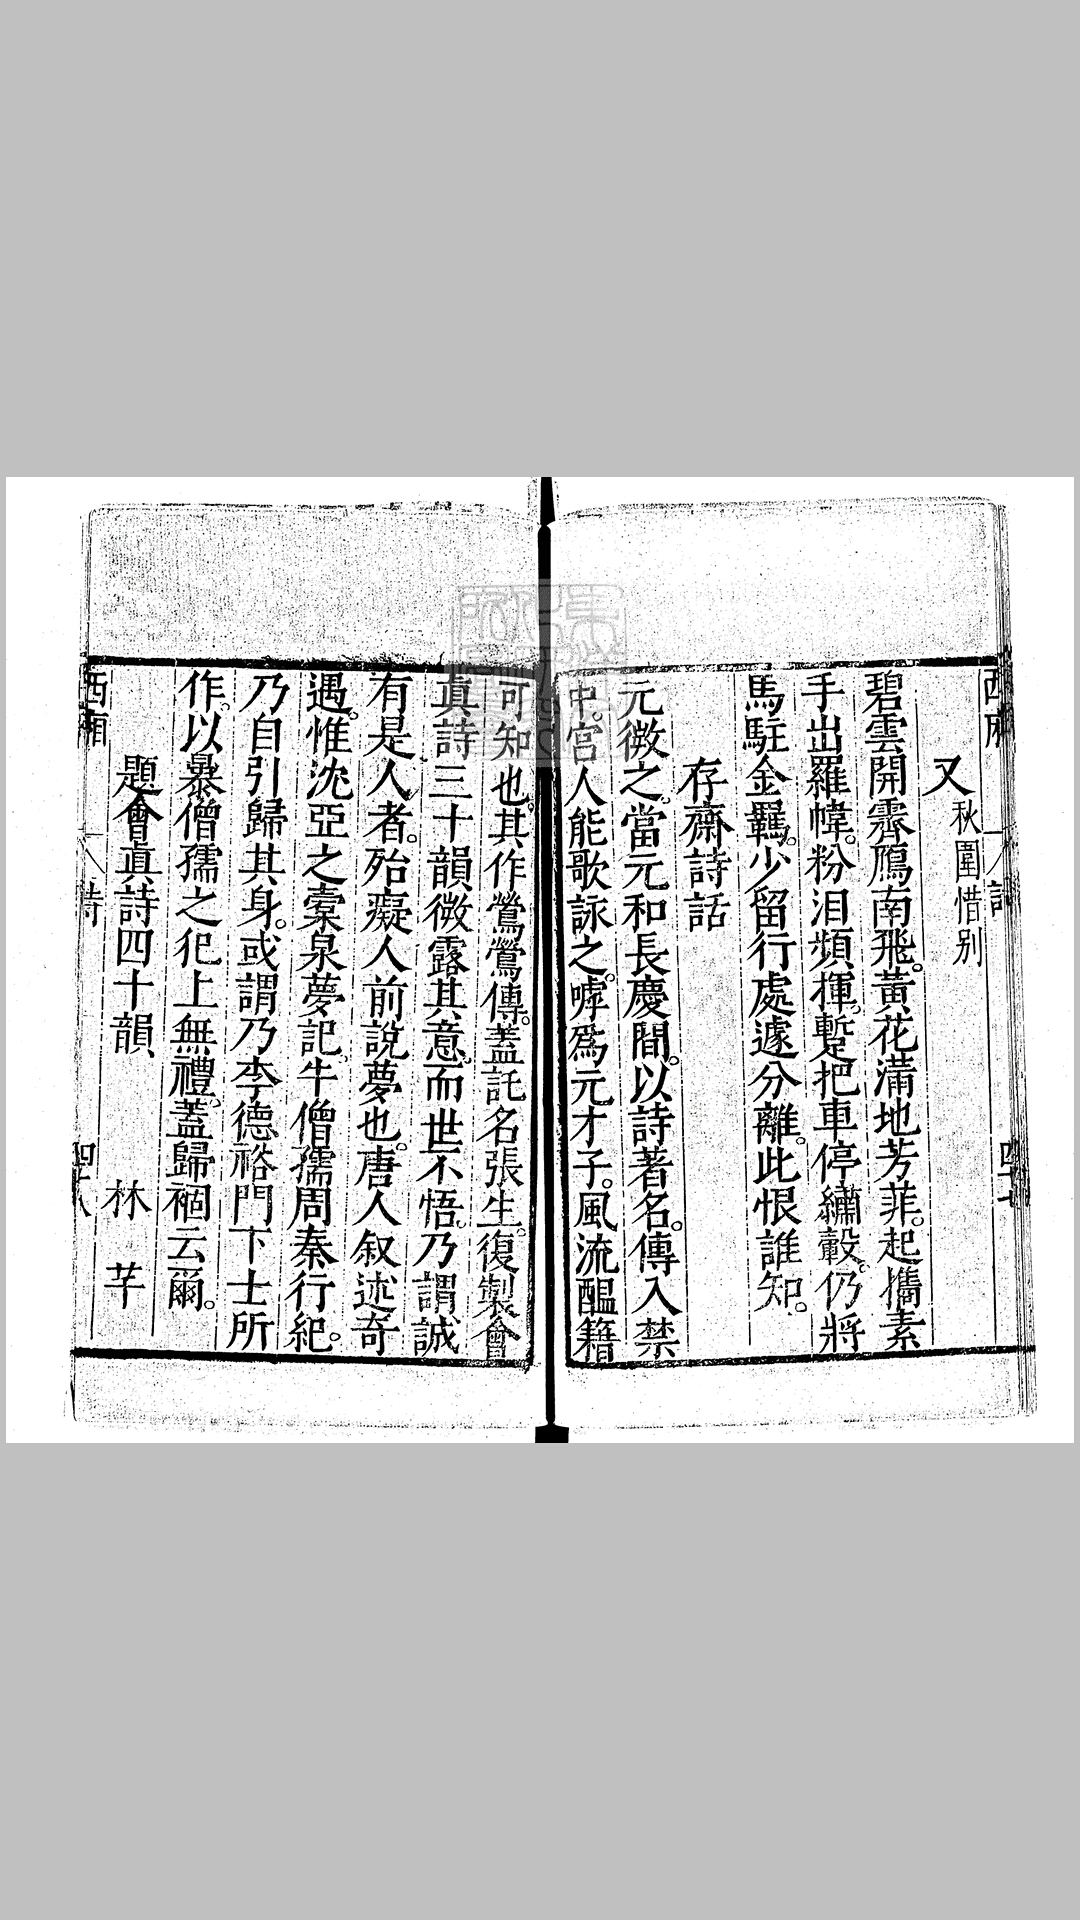 又 秋圍惜别
碧雲開霽鴈南飛。黃花滿地芳菲。起攜素
手出羅幃。粉泪頻揮。蹔把車停繡轂。仍將
馬駐金羈。少留行處遽分離。此恨誰知。
存齋詩話
元微之。當元和長慶間。以詩著名。傳入禁
中。宮人能歌詠之。嘑爲元才子。風流醞籍
可知也。其作鶯鶯傳。蓋託名張生。復製會
真詩三十韻微露其意。而世不悟。乃謂誠
有是人者。殆癡人前說夢也。唐人叙述奇
遇。惟沈亞之橐泉夢記。牛僧孺周秦行紀。
乃自引歸其身。或謂乃李德裕門下士所
作。以暴僧孺之犯上無禮。蓋歸禍云爾。
題會真詩四十韻 林 芊
西廂 詩 四十八